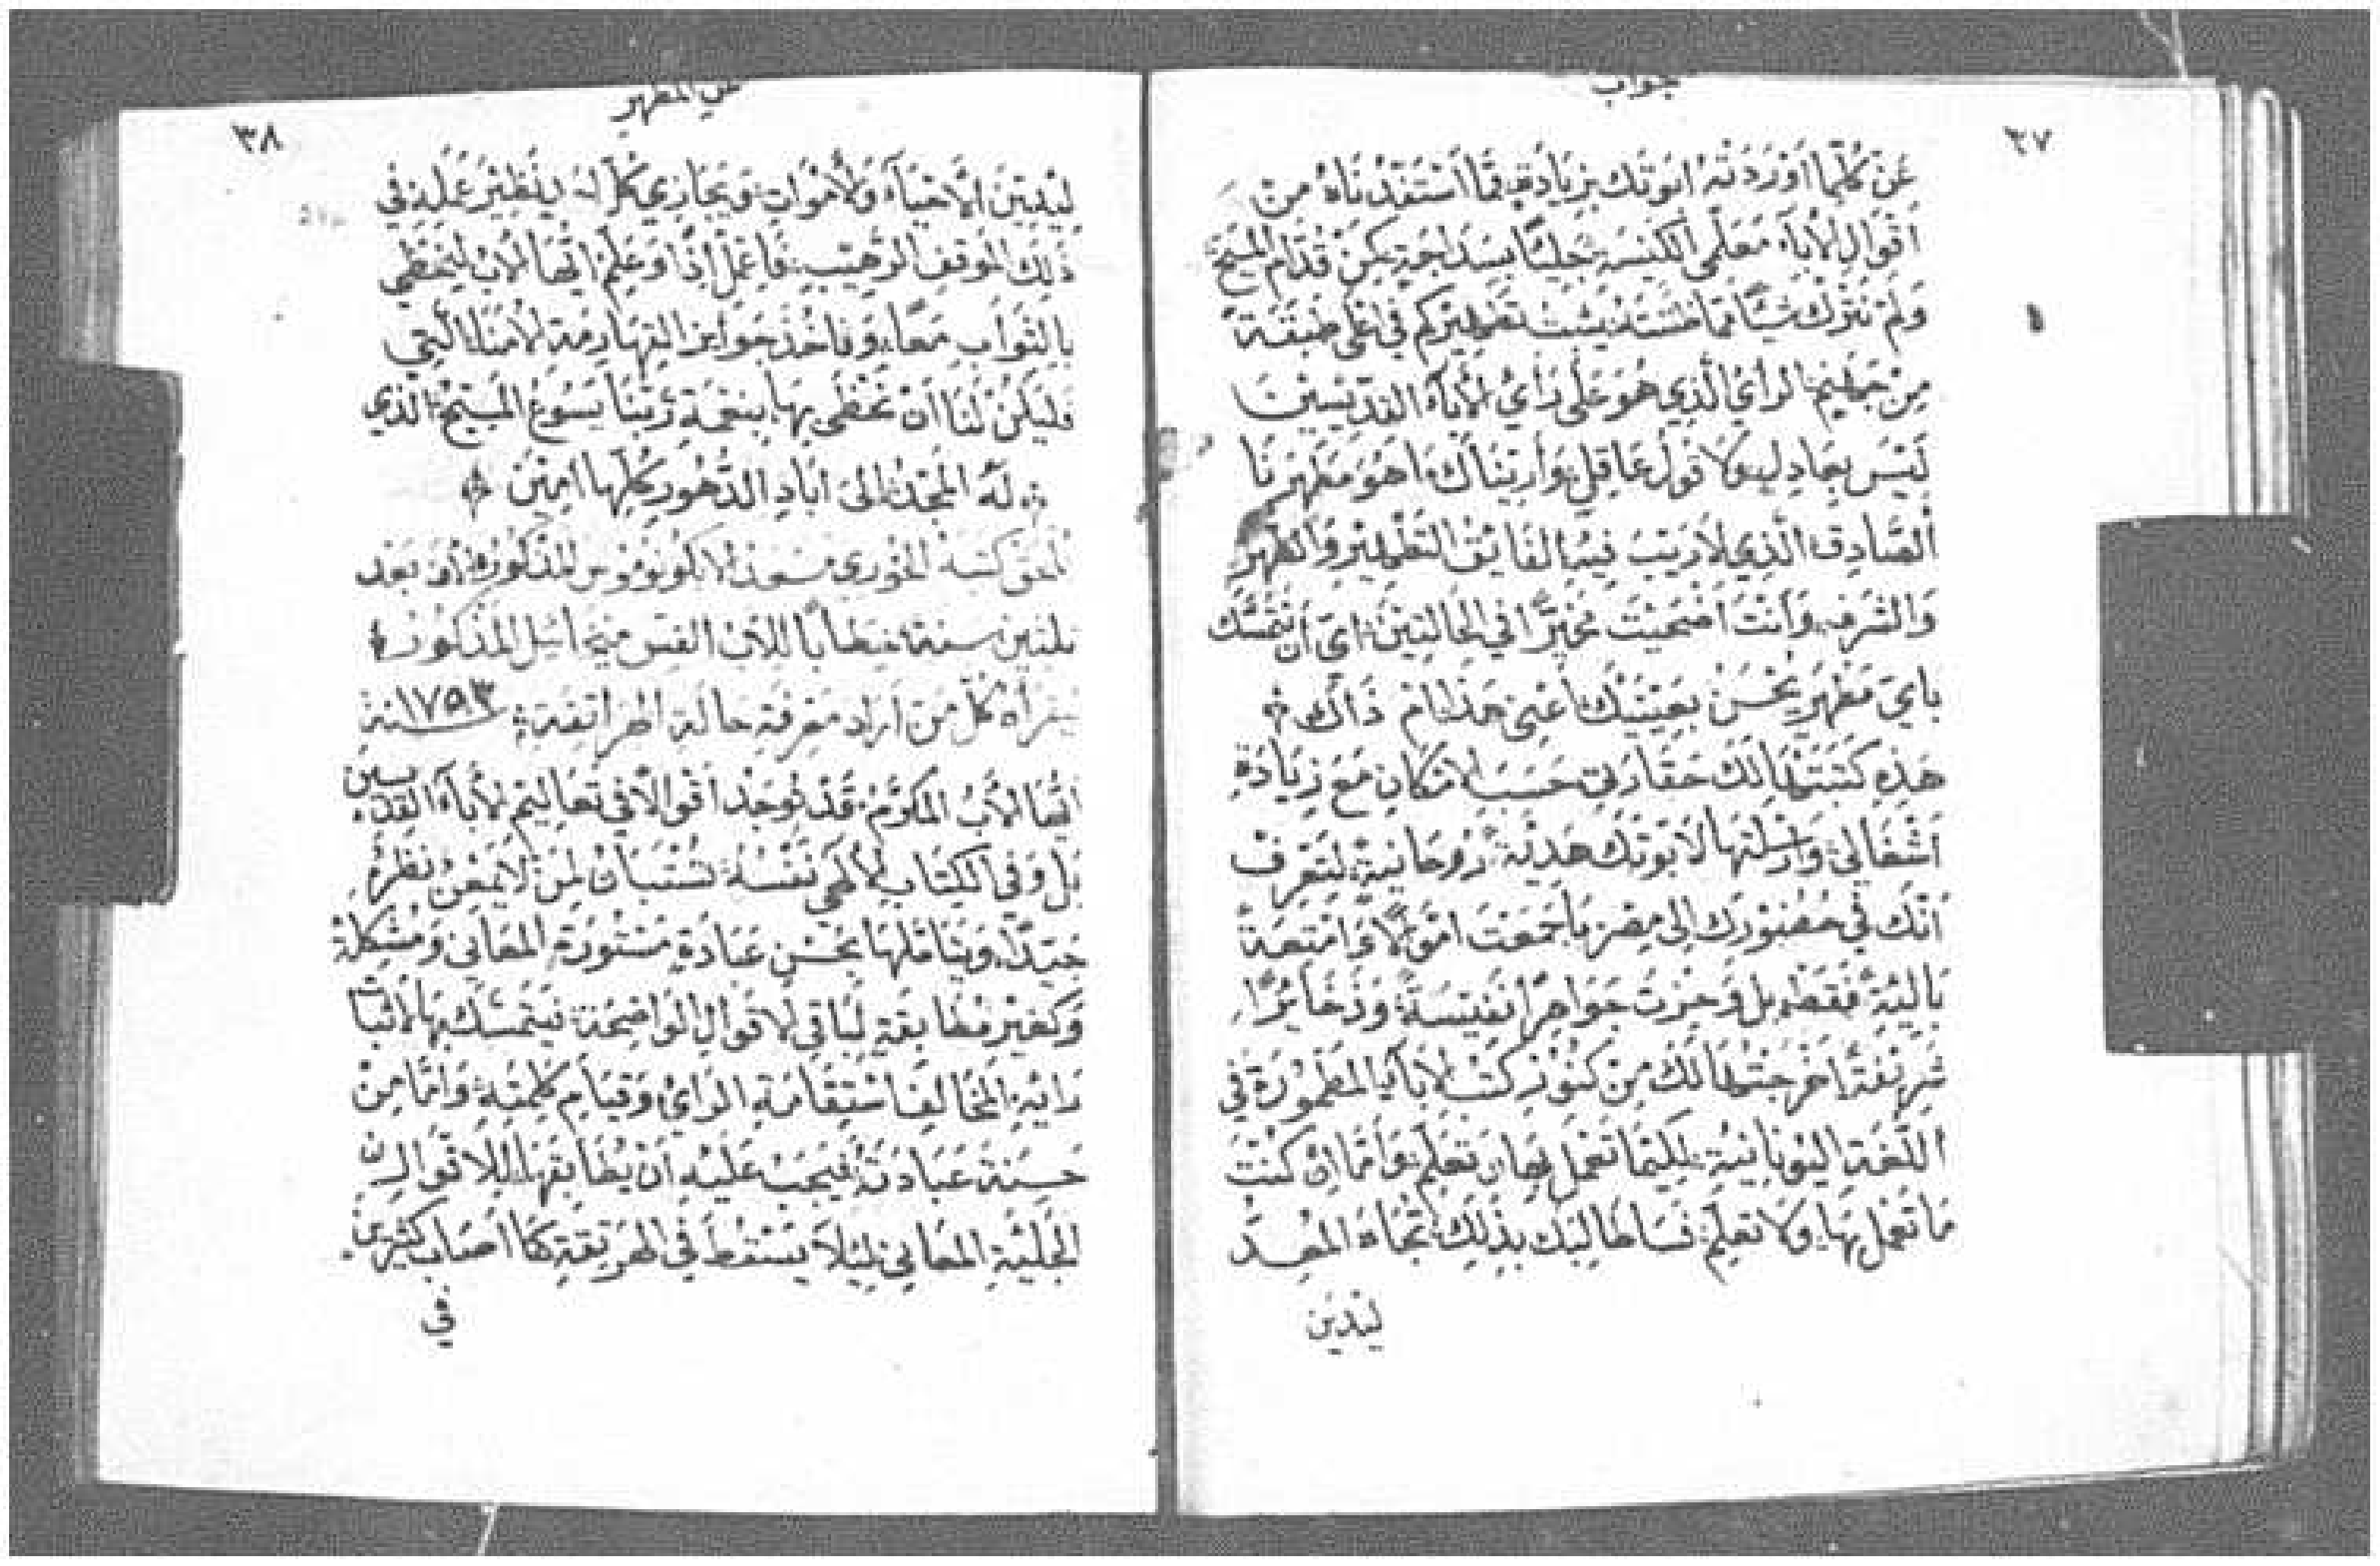 جواب
٣٧
عن كلما اوردته ابوتك بزيادة مما استفدناه من
اقوال الأباء معلمي الكنيسة جليًا بسداجة يكن قدام المسيح
ولم نترك شيًا مما تشبثت تغييركم في اعلى طبقة
من جهنيم الراي الذي هو على راي الأباء القديسين
ليس بجادل ولا قول عاقل وارتيناك ما هو مطهرنا
الصادق الذي لا ريب فيه الفايق التطهير والطهر
والشرف وانت اضحيت مخيرًا في الحالتين اي ان تتمسك
باي مطهر يحسن بعينيك اعني هذا ام ذاك
هذه كتبتها لك حقارتي حسب الامكان مع زيادة
اشغالي وارسلتها لابوتك هدية روحانية لتعرف
انك في حضورك الى مصر ما جمعت اموالًا وامتعة
بالية فقط بل وحزت جواهرًا نفيسة وذخايرًا
شريفة اخرجتها لك من كنوز كتب الابآء المطمورة في
اللغة اليونانية لكيما تعمل بها وتعلم واما ان كنت
ما تعمل بها ولا تعلم فساطالبك بذلك تجاه المعد
ليدين
في المطهر
٣٨
ليدين الاحياء والأموات ويجازي كل احد بنظير عمله في
ذلك الموقف الرهيب فاعمل اذًا وعلم ايها الاب ليحظى
بالثواب معًا وناخذ جوايز القهارمة الامناء التي
فليكن لنا ان نحظى بها بنعمة ربنا يسوع المسيح الذي
له المجد الى اباد الدهور كلها امين
الحق كتبه الخوري مسعد الايكونوموس المذكور من بعد
ثلثين سنة خطابًا للاب القس ميخائيل المذكور
ليقراه كل من اراد معرفة حالة الهراتقة سنة ١٧٥٣
ايها الأب المكرم قد توجد اقوالًا في تعاليم الأباء القديسين
بل وفي الكتاب الالهي نفسه تستبان لمن لا يمعن نظره
جيدًا ويتاملها بحسن عبادة مستورة المعاني ومشكلة
وكغير مطابقة لباقي الاقوال الواضحة فيتمسك بها لاثبات
رايه المخالف استقامة الراي وقيام كلمته واما من
حسنة عبادته فيجب عليه ان يطابقها للاقوال
الجلية المعاني ليلا يسقط في الهرتقة كما اصاب كثيرين
في